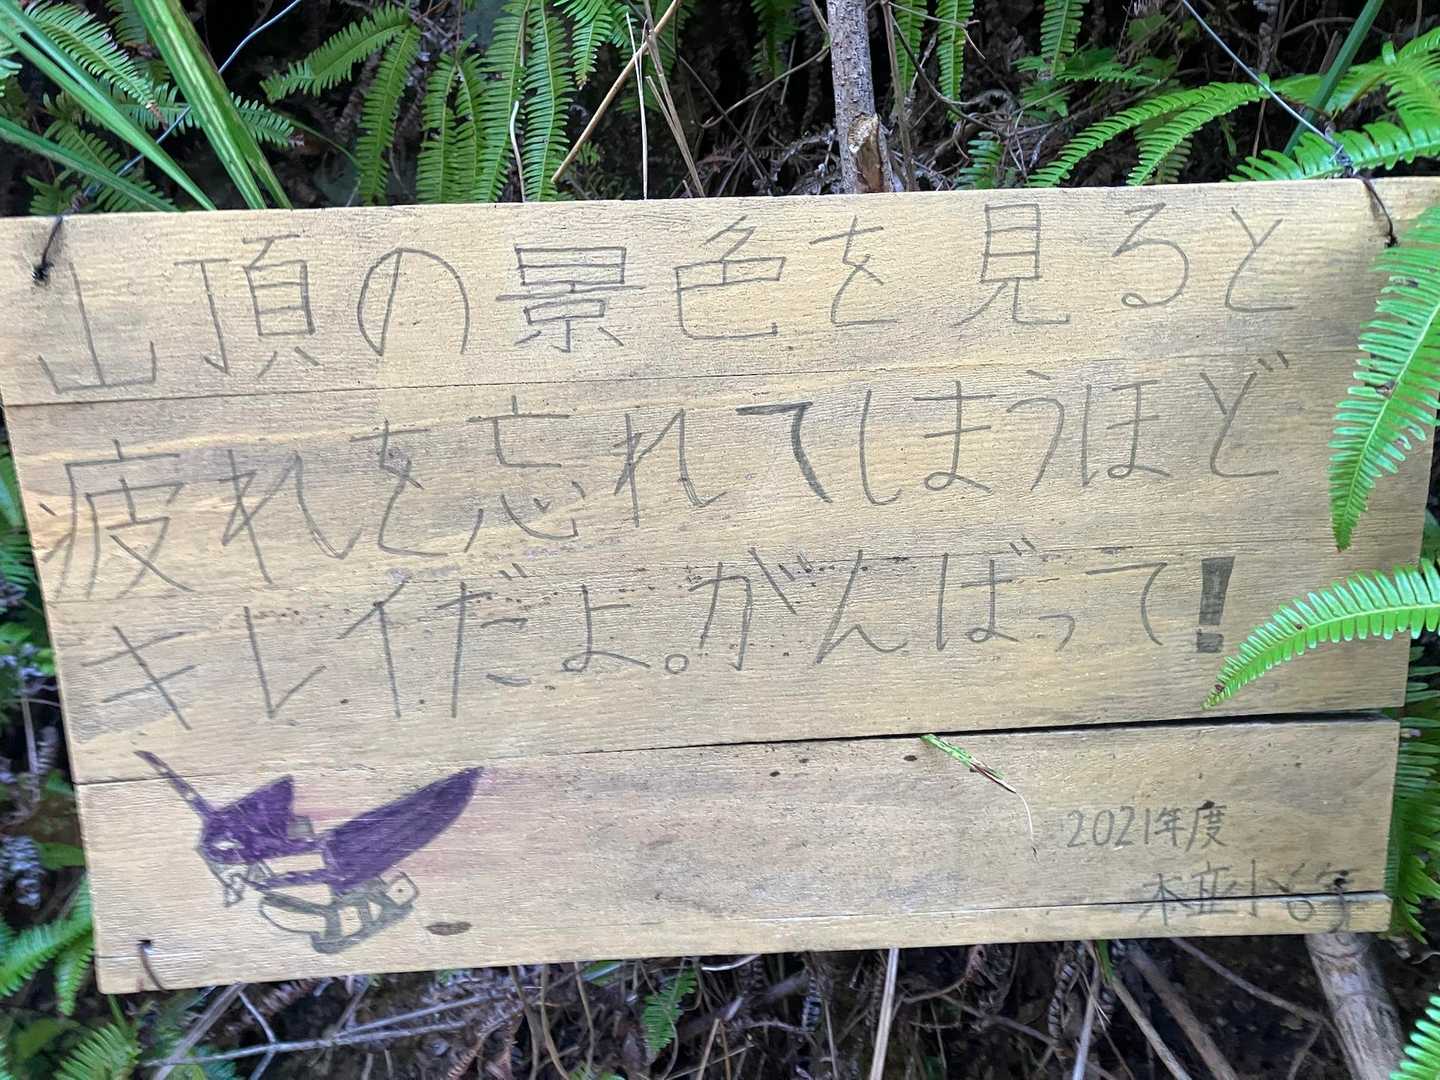 山頂の景色を見ると
疲れを忘れてしまうほど
キレイだよ。がんばって!
2021年度
木並小6年